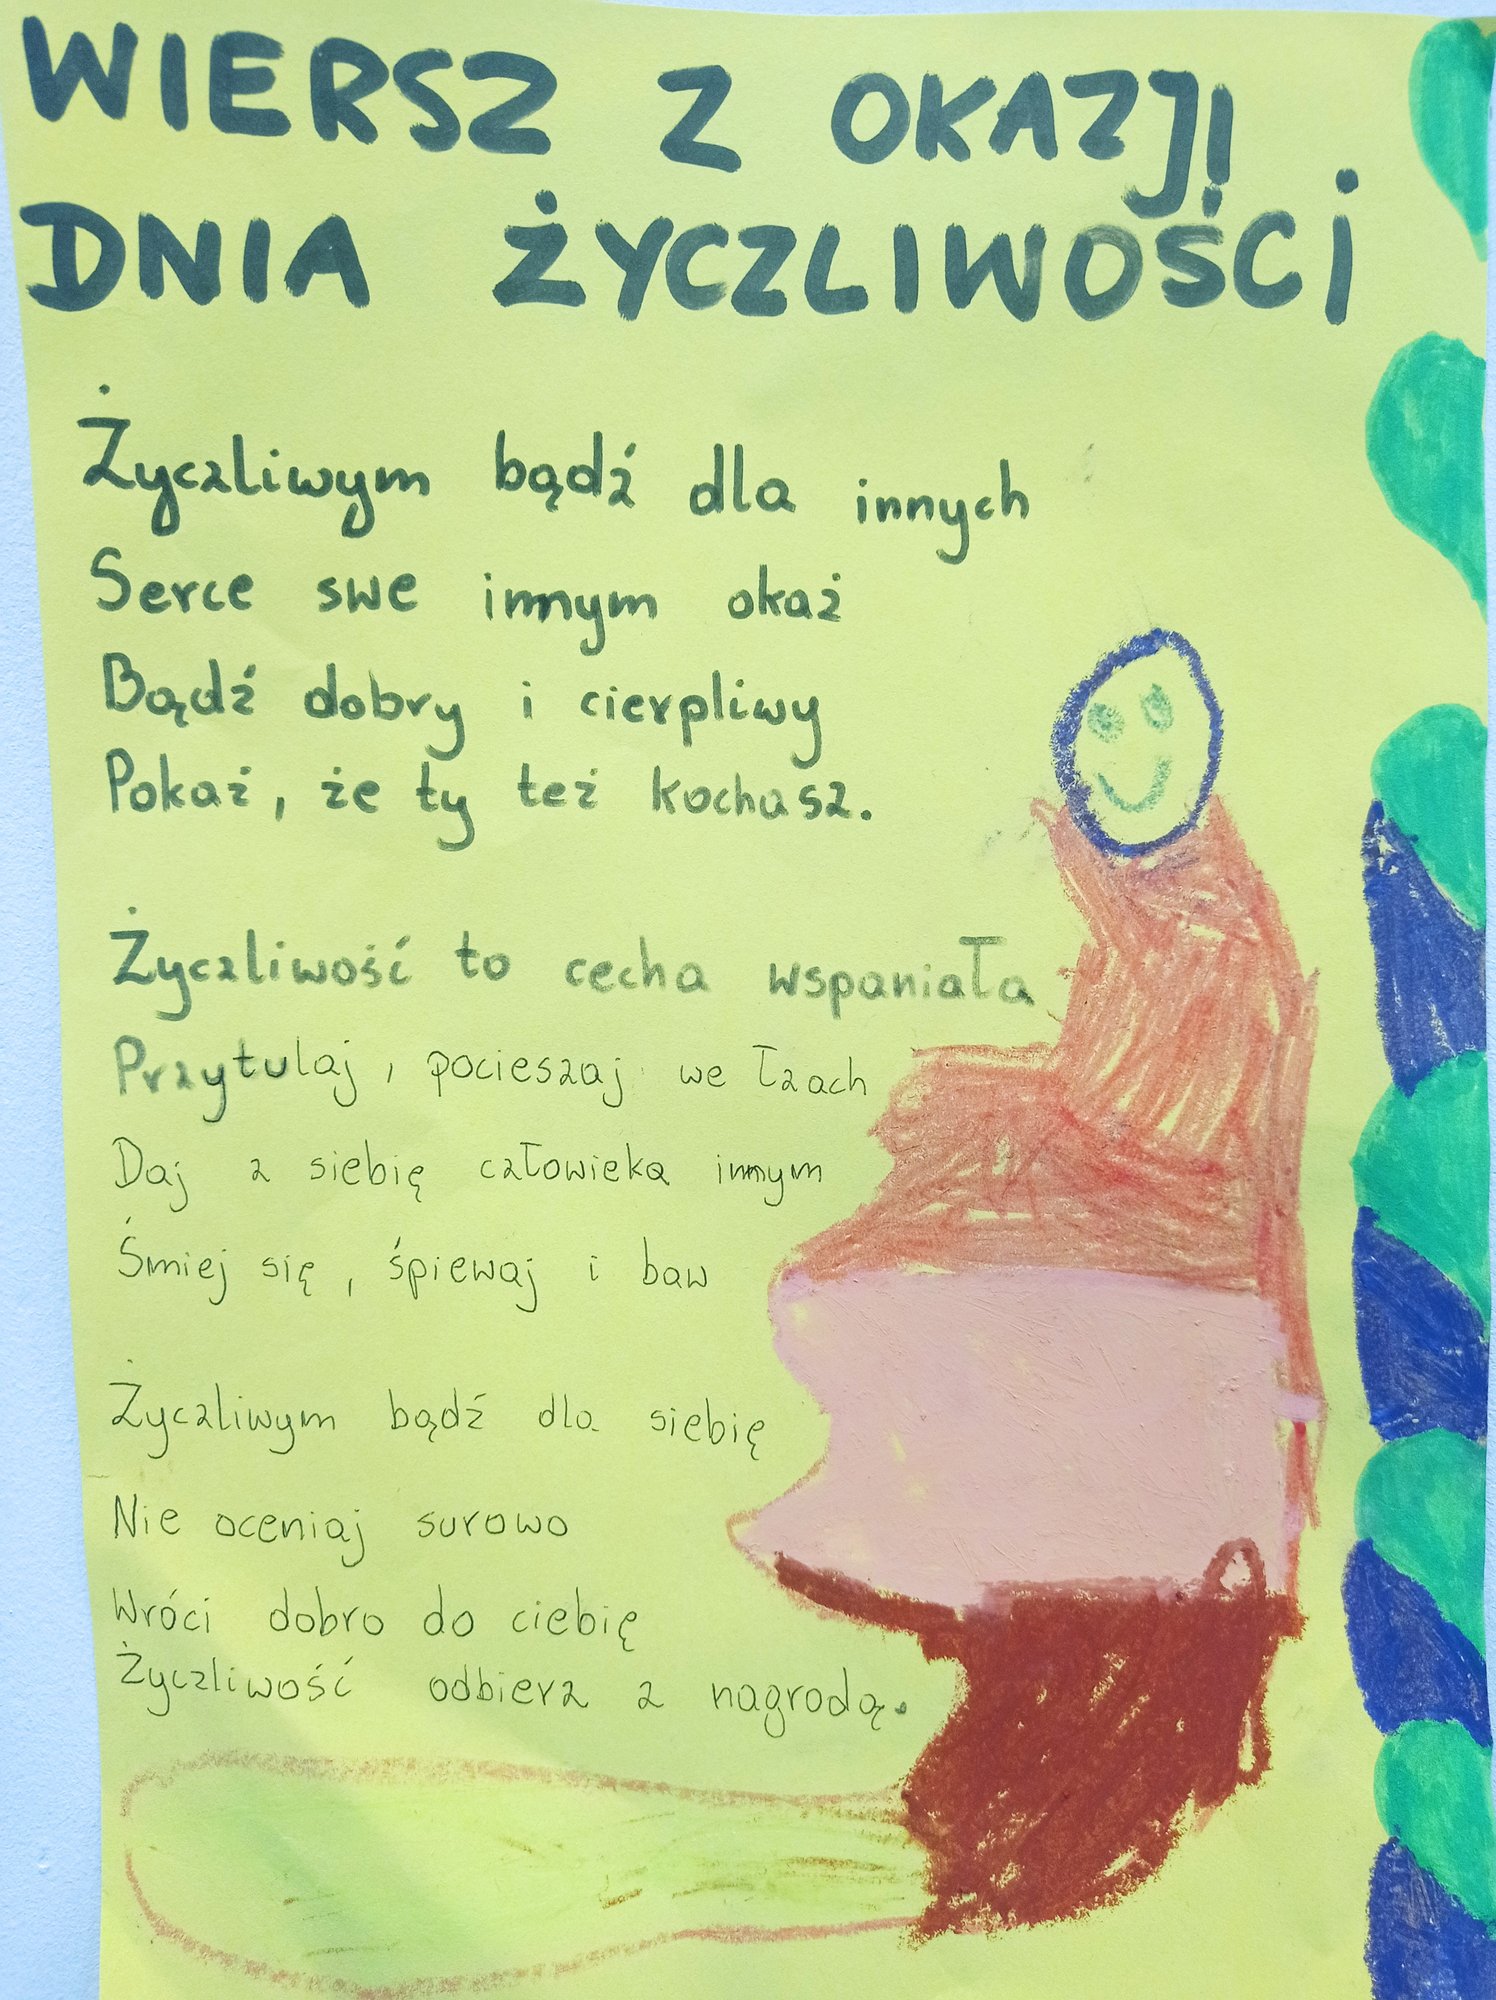 WIERSZ Z OKAZJI
DNIA ŻYCZLIWOŚCI
Życzliwym bądź dla innych
Serce swe innym okaż
Bądź dobry i cierpliwy
Pokaż, że ty też kochasz.
Życzliwość to cecha wspaniała
Przytulaj, pocieszaj we łzach
Daj z siebię człowieka innym
Śmiej się, śpiewaj i baw
Życzliwym bądź dla siebię
Nie oceniaj surowo
Wróci dobro do ciebię
Życzliwość odbierz z nagrodą.